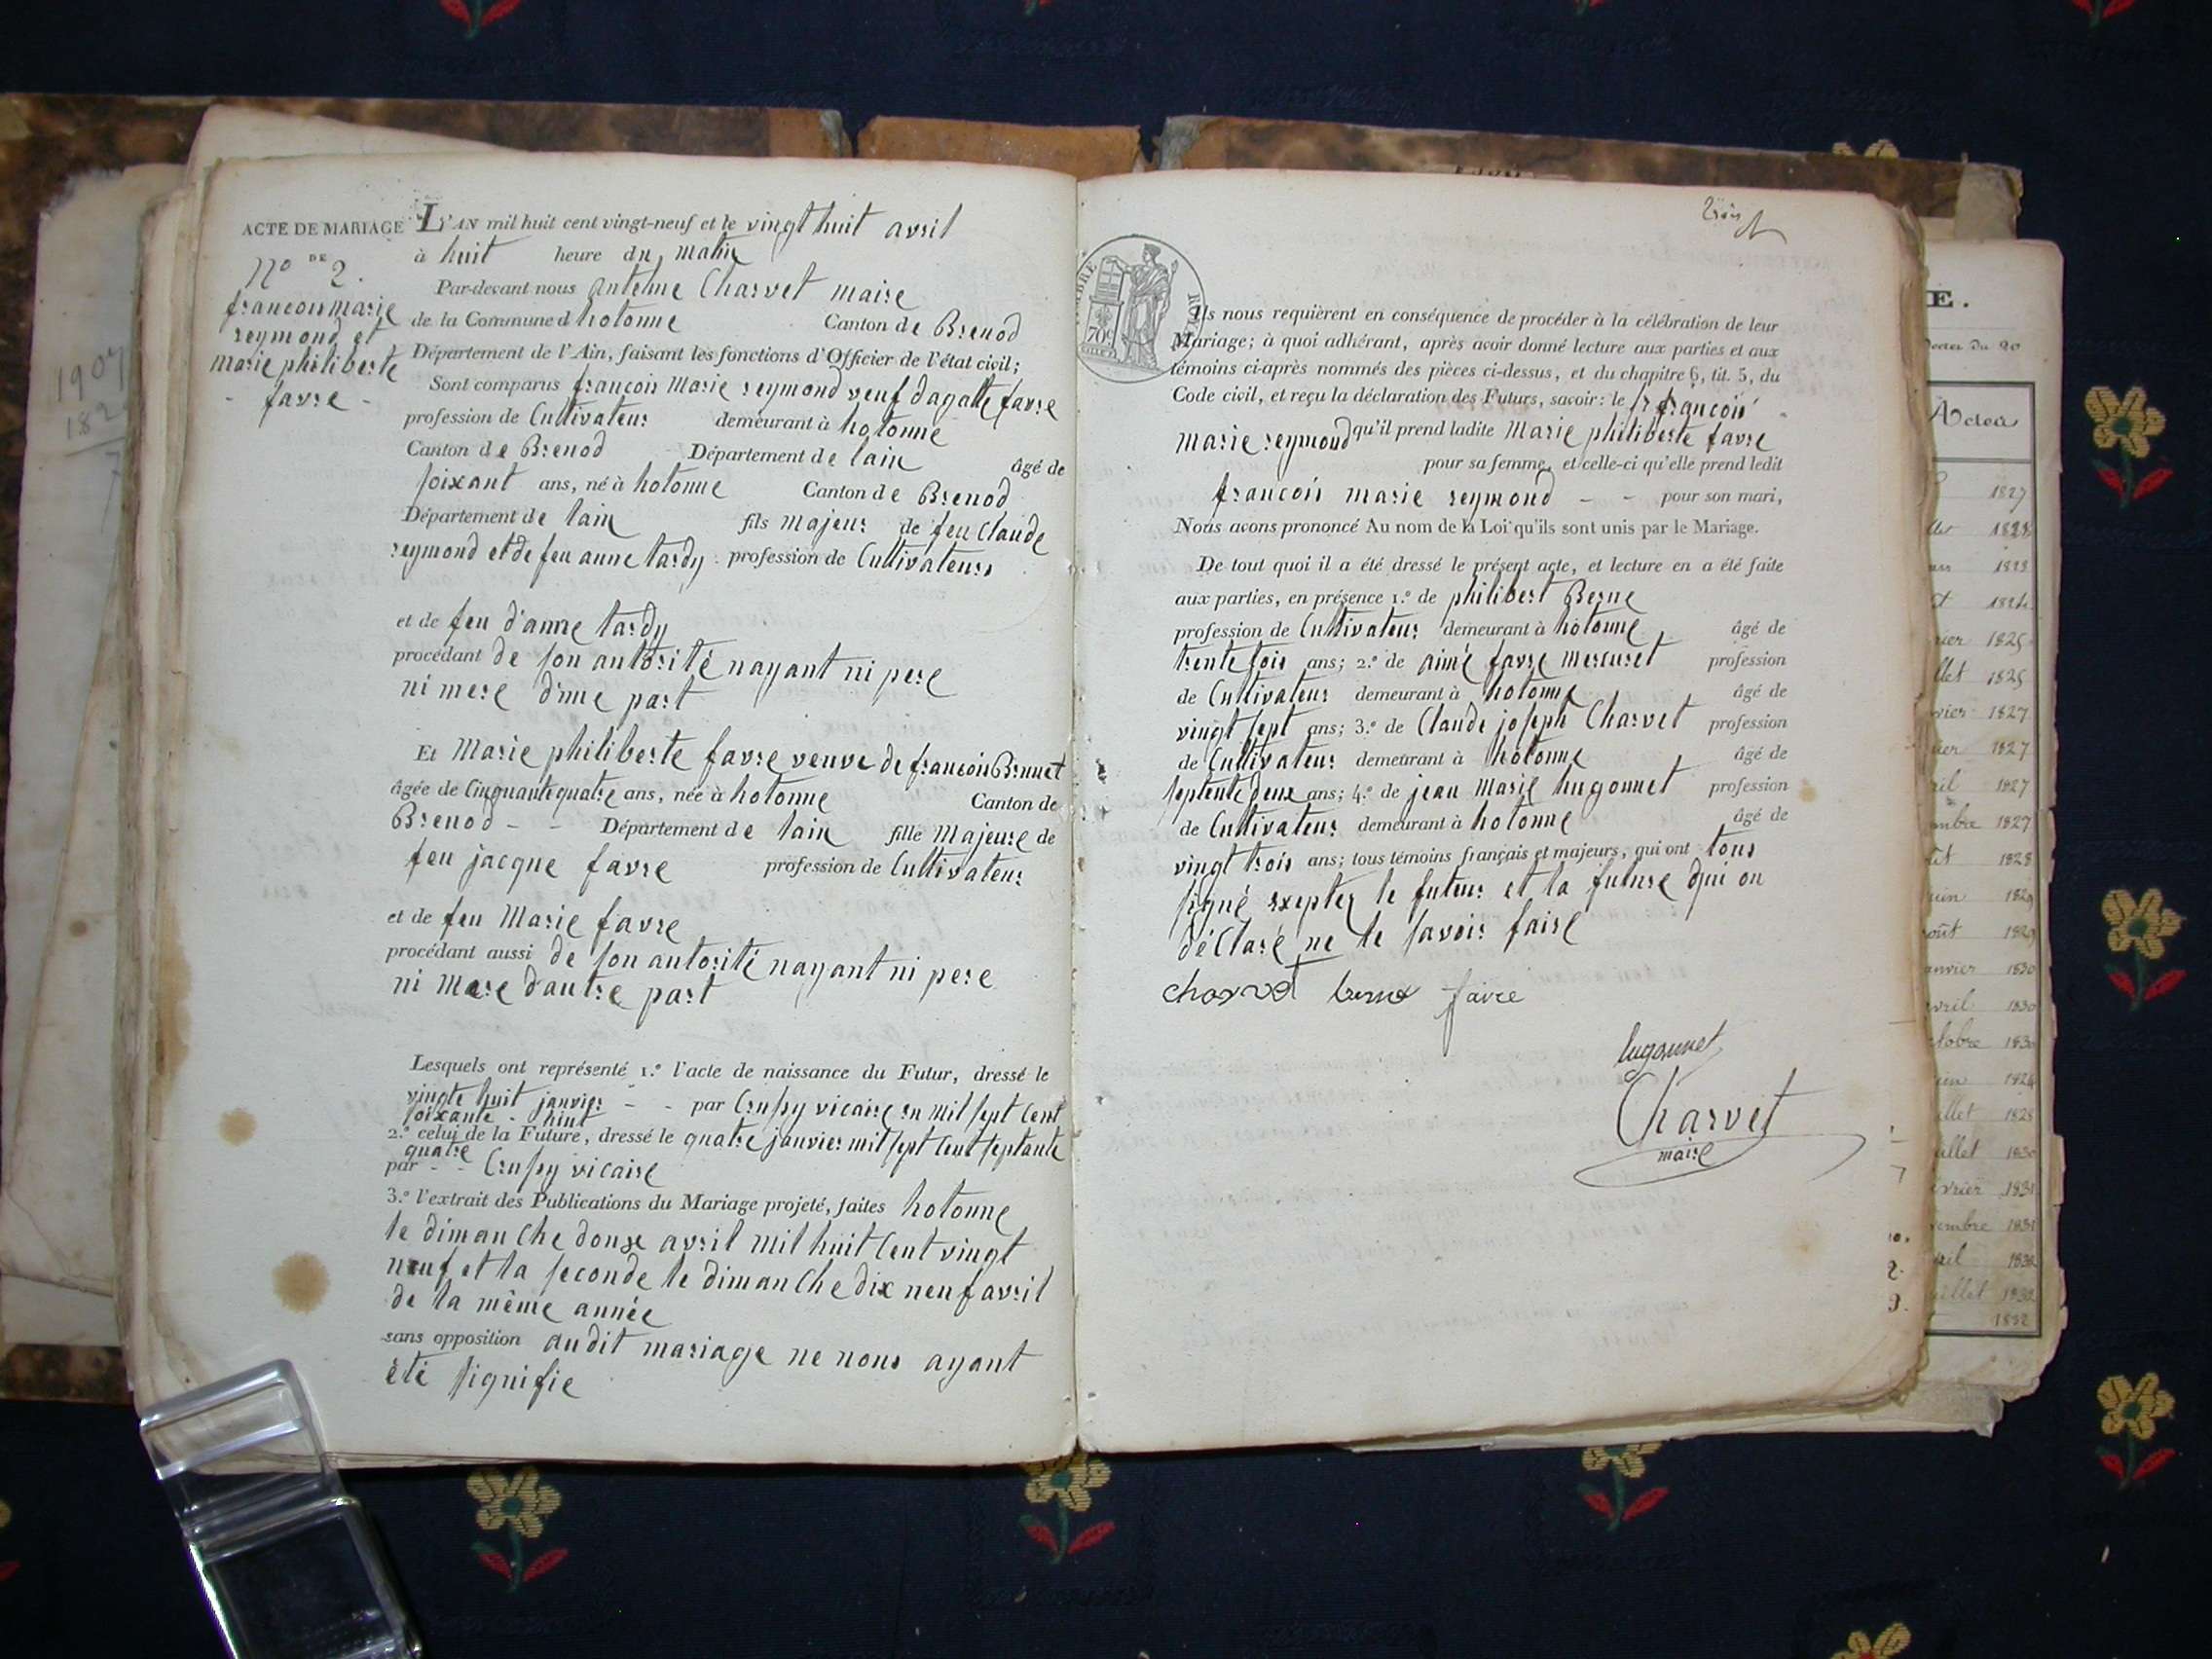 ACTE DE MARIAGE
DE
N.o 2.
francois marie
reymond et
marie philiberte
- favre -
L'AN mil huit cent vingt-neuf et le vingt huit avril
à huit heure du matin
Par-devant nous antelme Charvet maire
de la Commune d hotonne Canton de Brenod
Département de l'Ain, faisant les fonctions d'Officier de l'état civil;
Sont comparus françois Marie reymond veuf dagatte favre
profession de Cultivateur demeurant à hotonne
Canton de Brenod Département de lain âgé de
soixant ans, né à hotonne Canton de Brenod
Département de lain fils majeur de feu Claude
reymond et de feu anne tardy profession de Cultivateurs
et de feu d'anne tardy
procédant de son autorité nayant ni pere
ni mere d'une part
Et Marie philiberte favre veuve de francois Brunet
âgée de Cinquante quatre ans, née à hotonne Canton de
Brenod - - Département de lain fille Majeure de
feu jacque favre profession de Cultivateur
et de feu Marie favre
procédant aussi de son autorité nayant ni pere
ni Mere dautre part
Lesquels ont représenté 1.o l'acte de naissance du Futur, dressé le
vingte huit janvier - - par Crussy vicaire en mil sept Cent
soixante - huit
2.o celui de la Future, dressé le quatre janvier mil sept Cent septante
quatre
par - - Crussy vicaire
3.o l'extrait des Publications du Mariage projeté, faites hotonne
le dimanche douze avril mil huit Cent vingt
neuf et la seconde le dimanche dix neuf avril
de la même année
sans opposition audit mariage ne nous ayant
été signifie
trois
70c
Ils nous requièrent en conséquence de procéder à la célébration de leur
Mariage; à quoi adhérant, après avoir donné lecture aux parties et aux
témoins ci-après nommés des pièces ci-dessus, et du chapitre 6, tit. 5, du
Code civil, et reçu la déclaration des Futurs, savoir: le sr françois
marie reymond qu'il prend ladite Marie philiberte favre
pour sa femme, et celle-ci qu'elle prend ledit
francois marie reymond - - pour son mari,
Nous avons prononcé Au nom de la Loi qu'ils sont unis par le Mariage.
De tout quoi il a été dressé le présent acte, et lecture en a été faite
aux parties, en présence 1.o de philibert Berne
profession de Cultivateur demeurant à hotonne âgé de
trente tois ans; 2.o de aimé favre mercuret profession
de Cultivateur demeurant à hotonne âgé de
vingt sept ans; 3.o de Claude joseph Charvet profession
de Cultivateur demeurant à hotonne âgé de
septente deux ans; 4.o de jean Marie hugonnet profession
de Cultivateur demeurant à hotonne âgé de
vingt trois ans; tous témoins français et majeurs, qui ont tous
signé exepter le futeur et la future qui on
déClaré ne le savoir faire
charvet berne favre
hugonnet
Charvet
maire
E.
Actes
1827
1825
1825
1827
1827
1827
1827
1828
juin 1829
août 1829
janvier 1830
avril 1830
octobre 1830